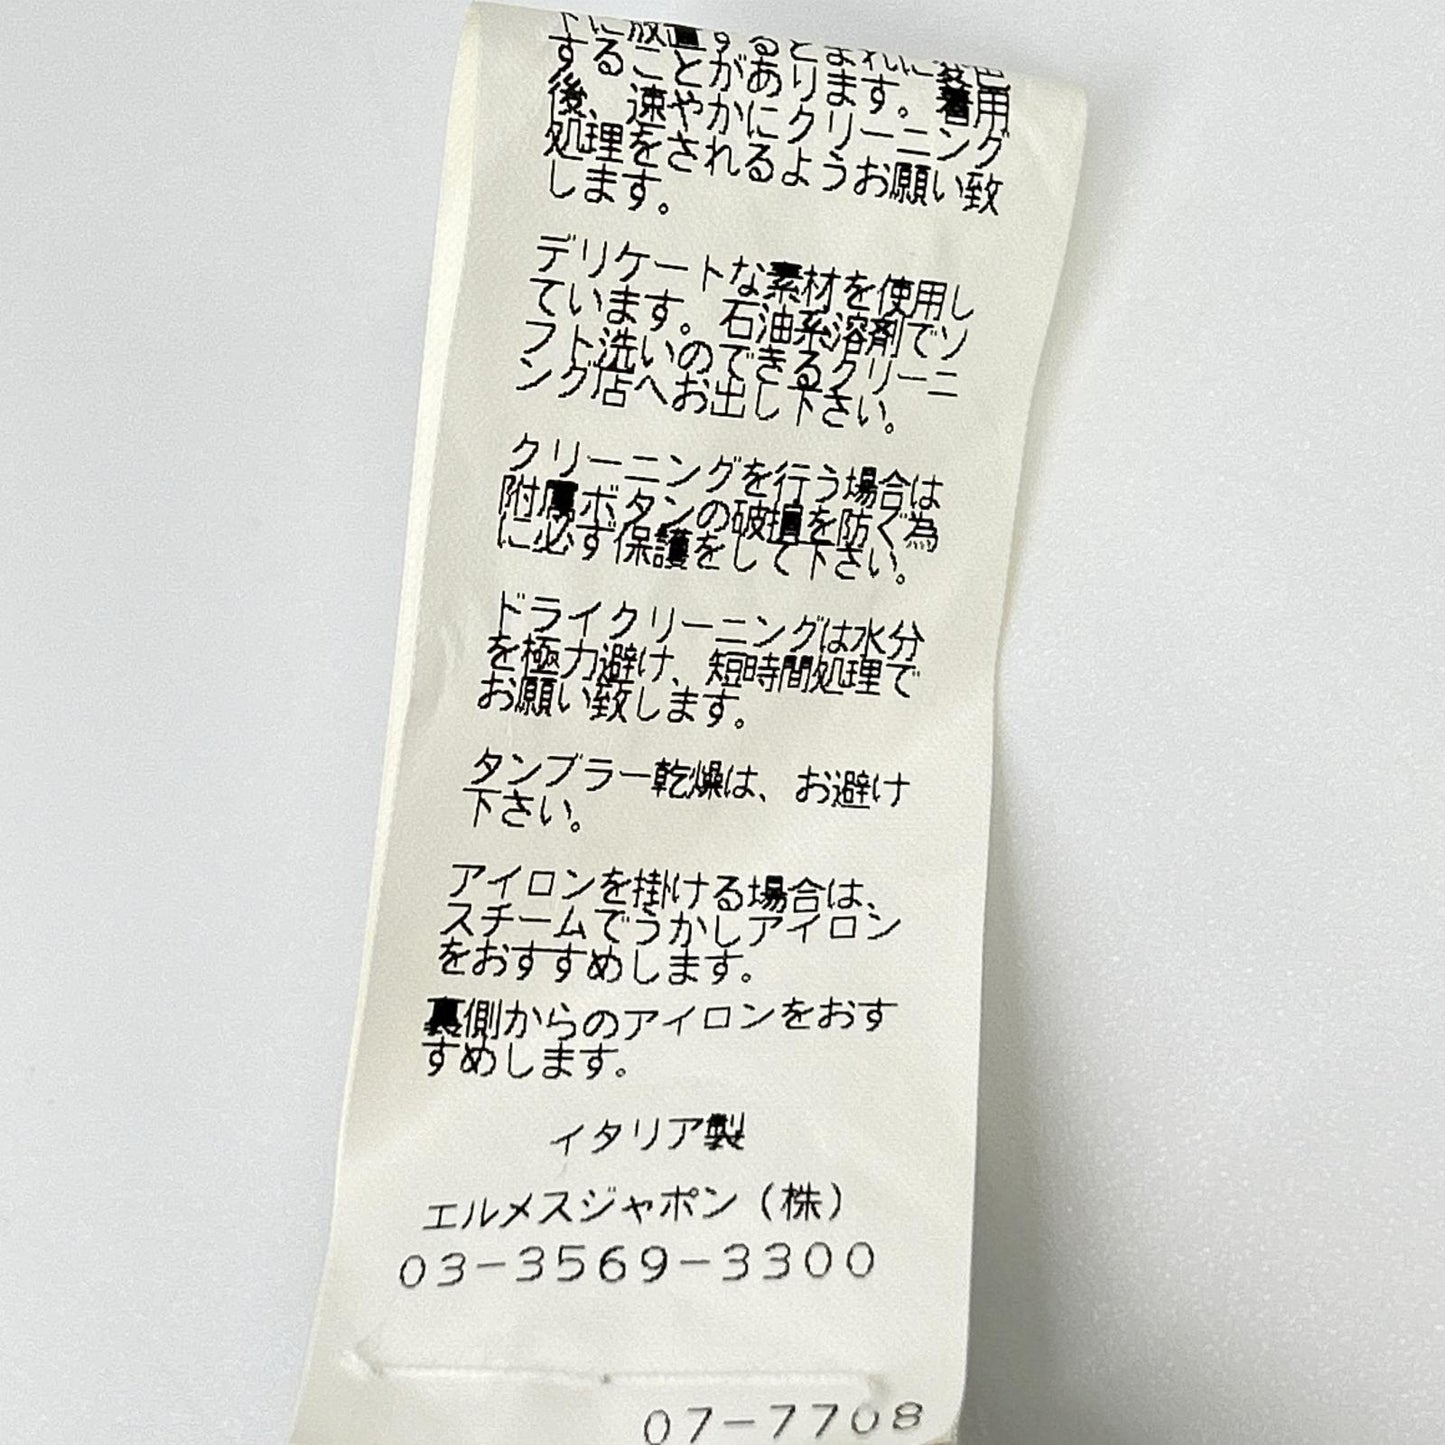 下に放置するとまれに変色
することがあります。着用
後、速やかにクリーニング
処理をされるようお願い致
します。
デリケートな素材を使用し
ています。石油系溶剤でソ
フト洗いのできるクリーニ
ング店へお出し下さい。
クリーニングを行う場合は
附属ボタンの破損を防ぐ為
に必ず保護をして下さい。
ドライクリーニングは水分
を極力避け、短時間処理で
お願い致します。
タンブラー乾燥は、お避け
下さい。
アイロンを掛ける場合は、
スチームでうかしアイロン
をおすすめします。
裏側からのアイロンをおす
すめします。
イタリア製
エルメスジャポン（株）
03-3569-3300
07-7708